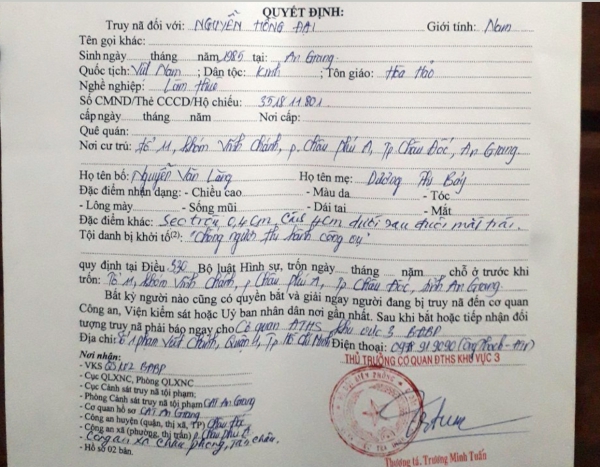 QUYẾT ĐỊNH:
Truy nã đối với: NGUYỄN HỒNG ĐẠI Giới tính: Nam
Tên gọi khác:
Sinh ngày tháng năm 1985 tại: An Giang
Quốc tịch: Việt Nam ; Dân tộc: Kinh ; Tôn giáo: Hòa Hảo
Nghề nghiệp: Làm thuê
Số CMND/Thẻ CCCD/Hộ chiếu: 351811801
cấp ngày tháng năm Nơi cấp:
Quê quán:
Nơi cư trú: Tổ 11, khóm Vĩnh Chánh, p. Châu Phú A, Tp Châu Đốc, An Giang.
Họ tên bố: Nguyễn Văn Lăng Họ tên mẹ: Dương Thị Bảy
Đặc điểm nhận dạng: - Chiều cao - Màu da - Tóc
- Lông mày - Sống mũi - Dái tai - Mắt
Đặc điểm khác: Sẹo tròn 0,4cm, cách 4cm dưới sau đuôi mắt trái.
Tội danh bị khởi tố(2): "Chống người thi hành công vụ"
quy định tại Điều 330 Bộ luật Hình sự, trốn ngày tháng năm chỗ ở trước khi
trốn: Tổ 11, khóm Vĩnh Chánh, p Châu Phú A, Tp Châu Đốc, tỉnh An Giang.
Bất kỳ người nào cũng có quyền bắt và giải ngay người đang bị truy nã đến cơ quan
Công an, Viện kiểm sát hoặc Uỷ ban nhân dân nơi gần nhất. Sau khi bắt hoặc tiếp nhận đối
tượng truy nã phải báo ngay cho Cơ quan ĐTHS khu vực 3 BĐBP
Địa chỉ: Số 1 phan Văn Chánh, Quận 4, Tp Hồ Chí Minh Điện thoại:
THỦ TRƯỞNG CƠ QUAN ĐTHS KHU VỰC 3
Nơi nhận:
- VKS BĐBP
- Cục QLXNC, Phòng QLXNC
- Cục Cảnh sát truy nã tội phạm
- Phòng Cảnh sát truy nã tội phạm CAT An Giang
- Cơ quan hồ sơ CAT An Giang
- Công an huyện (quận, thị xã, TP) Châu Đốc
- Công an xã (phường, thị trấn) p Châu Phú A
- Công an xã Châu phong, Tân Châu.
- Hồ sơ 02 bản.
Thượng tá. Trương Minh Tuấn